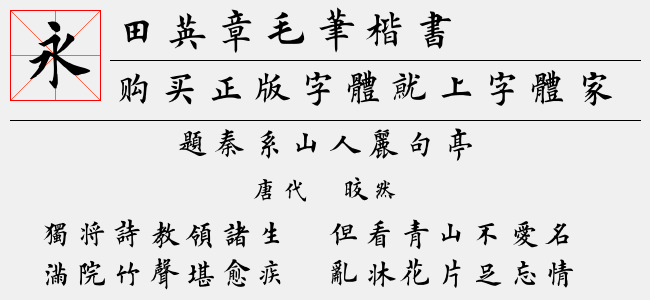 永
田英章毛筆楷書
购买正版字體就上字體家
題秦系山人麗句亭
唐代　皎然
獨将詩教領諸生　但看青山不愛名
滿院竹聲堪愈疾　亂牀花片足忘情